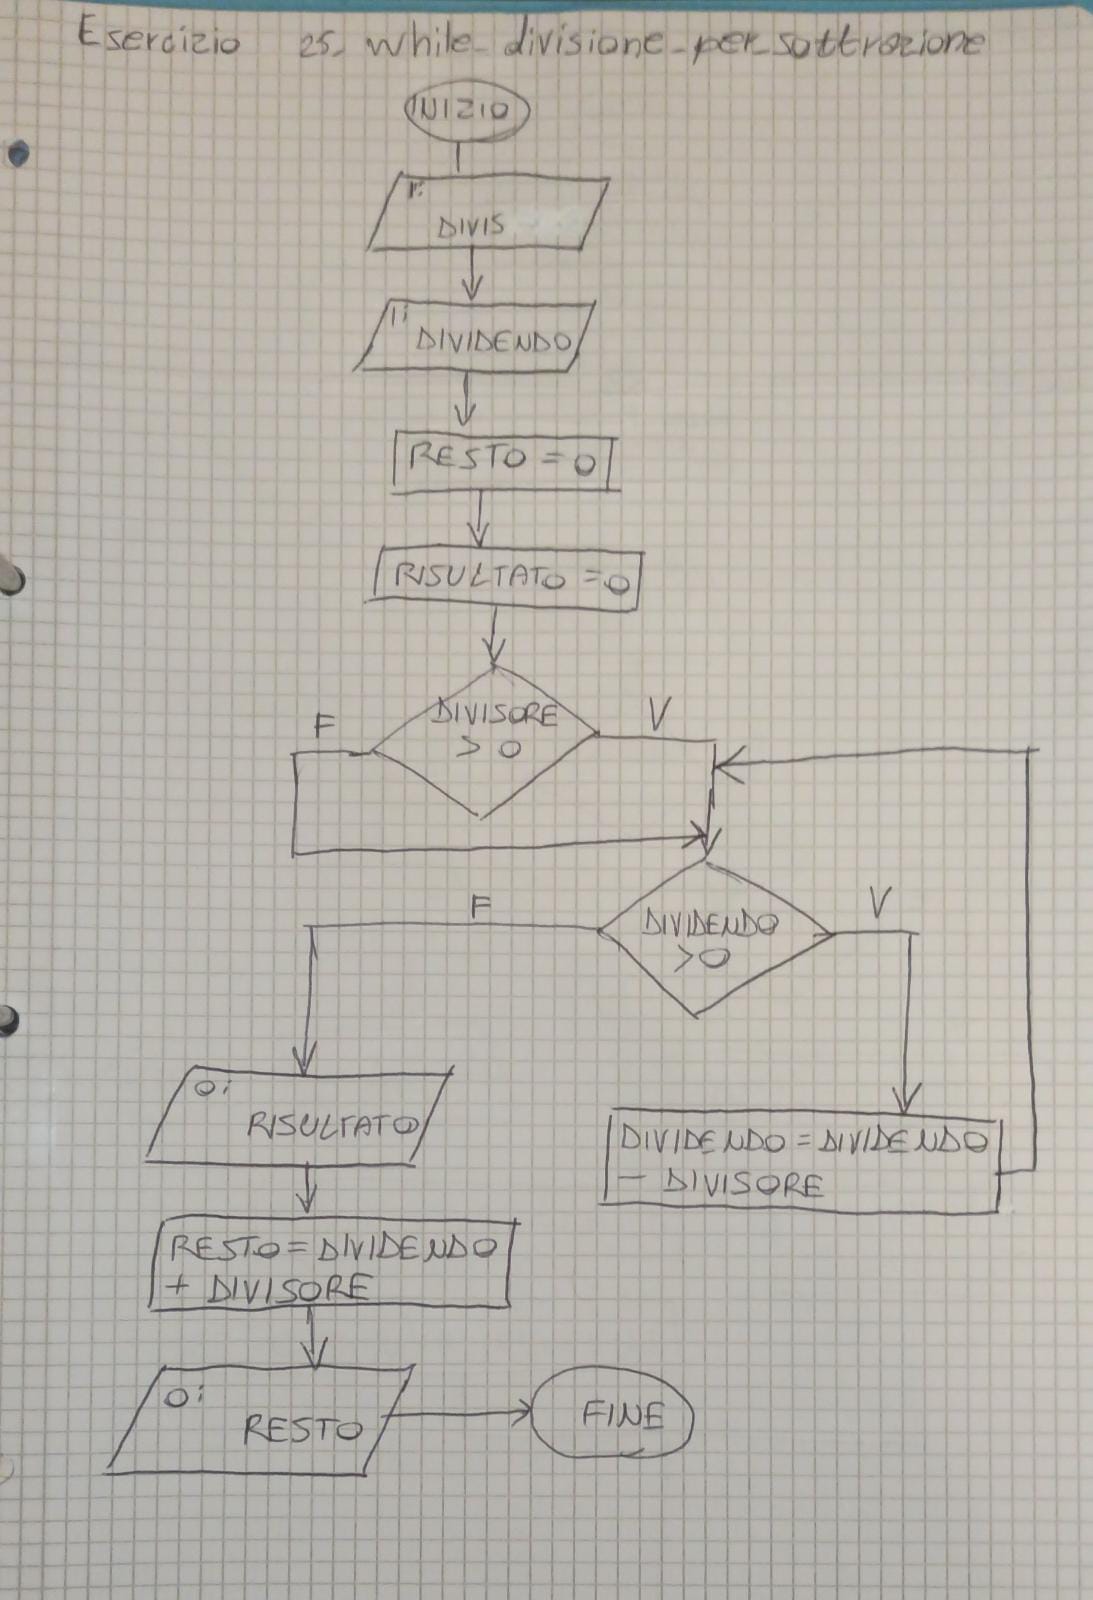 Esercizio 25_ while_divisione_per_sottrazione
INIZIO
I:
DIVIS
I:
DIVIDENDO
RESTO = 0
RISULTATO = 0
DIVISORE
> 0
F
V
DIVIDENDO
> 0
F
V
O:
RISULTATO
DIVIDENDO = DIVIDENDO
- DIVISORE
RESTO = DIVIDENDO
+ DIVISORE
O:
RESTO
FINE